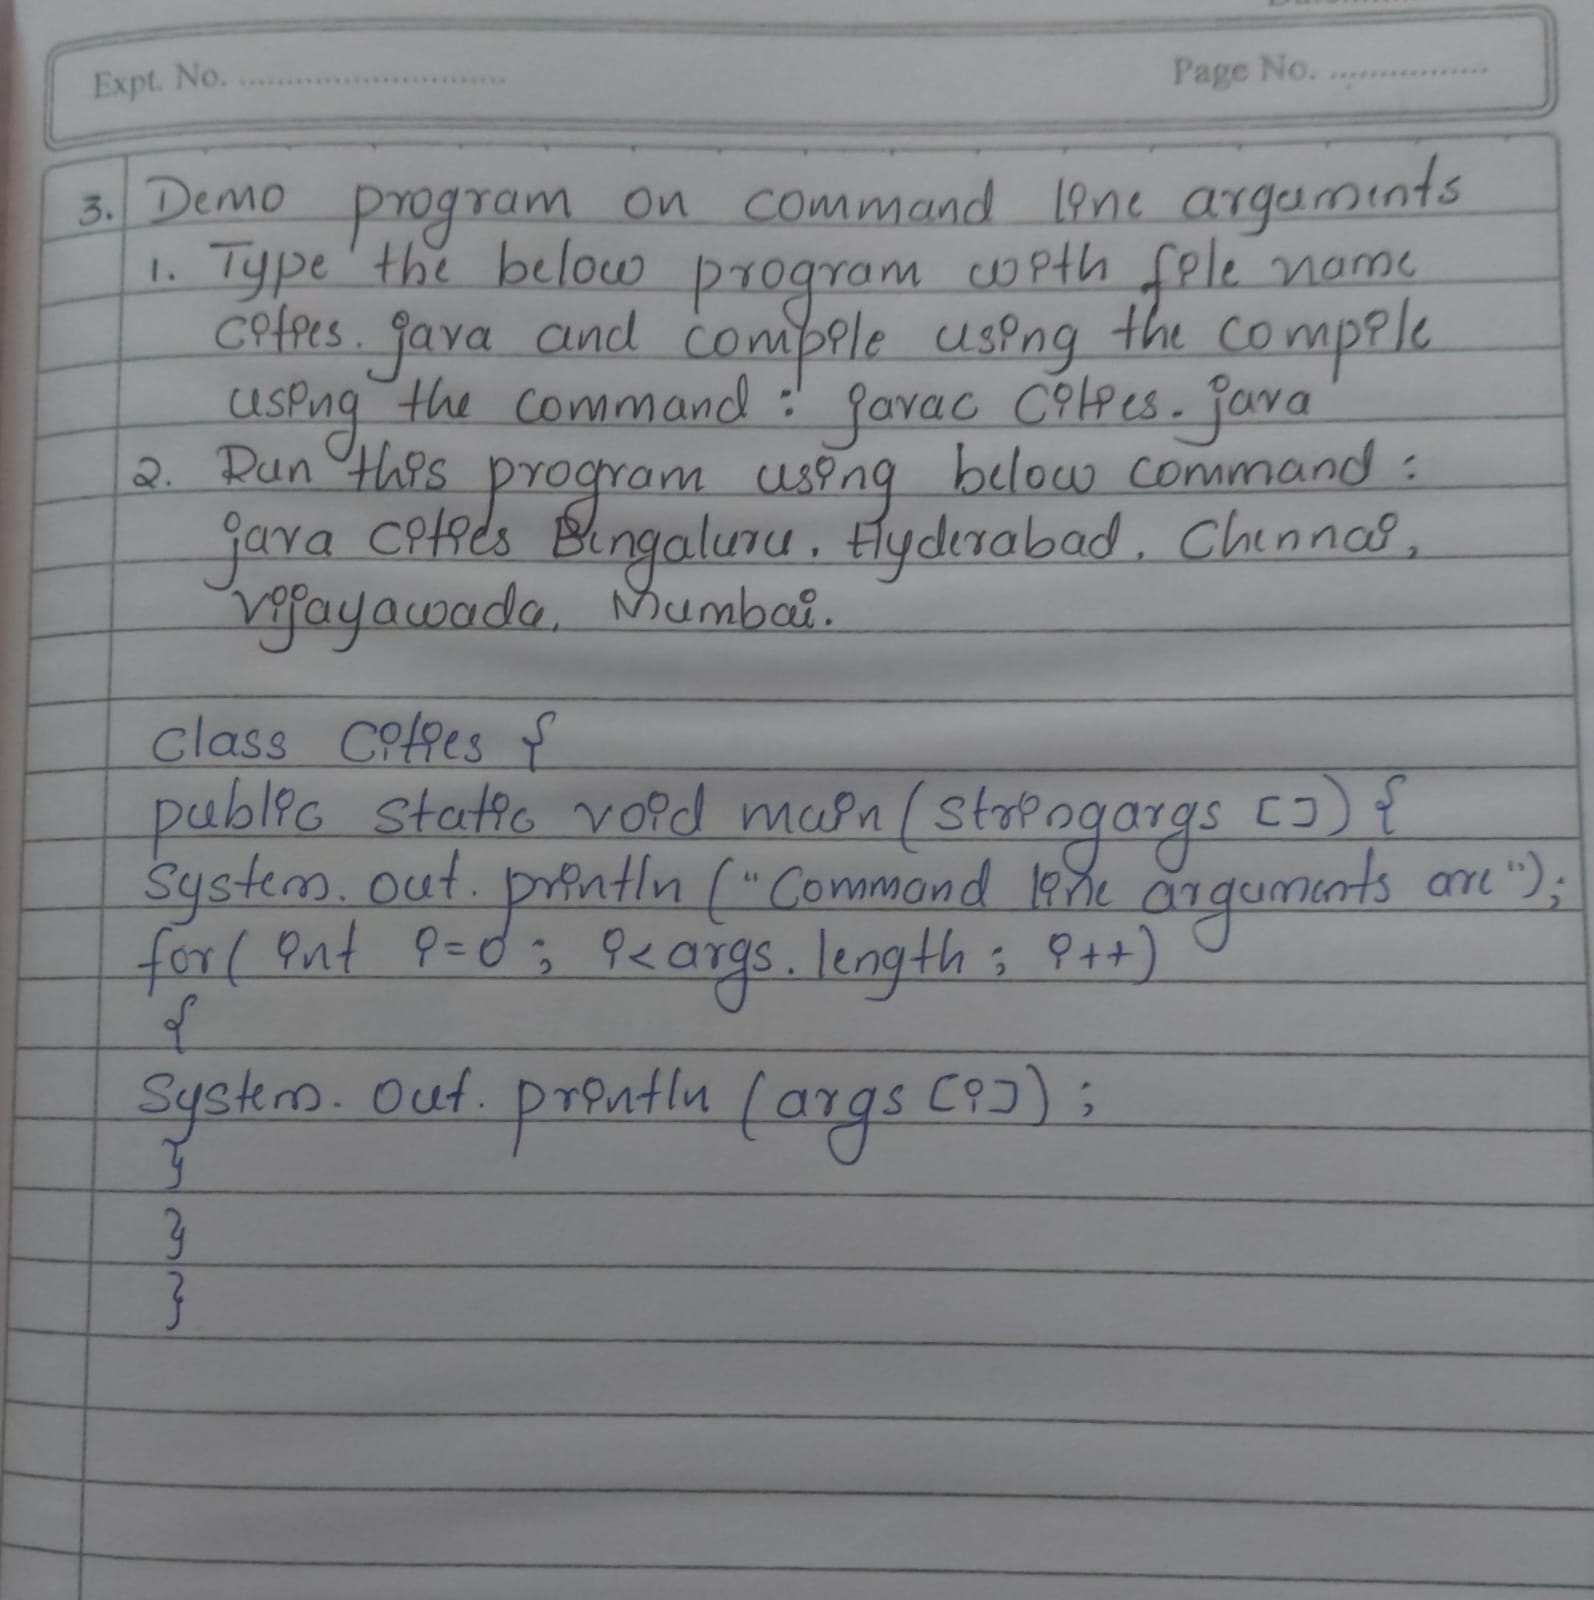 Expt. No. ........................
Page No. ................
3. Demo program on command line arguments
1. Type the below program with file name
cities. java and compile using the compile
using the command : javac Cities. java
2. Run this program using below command :
java cities Bengaluru, Hyderabad, Chennai,
vijayawada, Mumbai.
class Cities {
public static void main (stringargs []) {
System. out. println ("Command line arguments are");
for( int i=0 ; i<args. length ; i++)
{
System. out. println (args [i]) ;
}
}
}